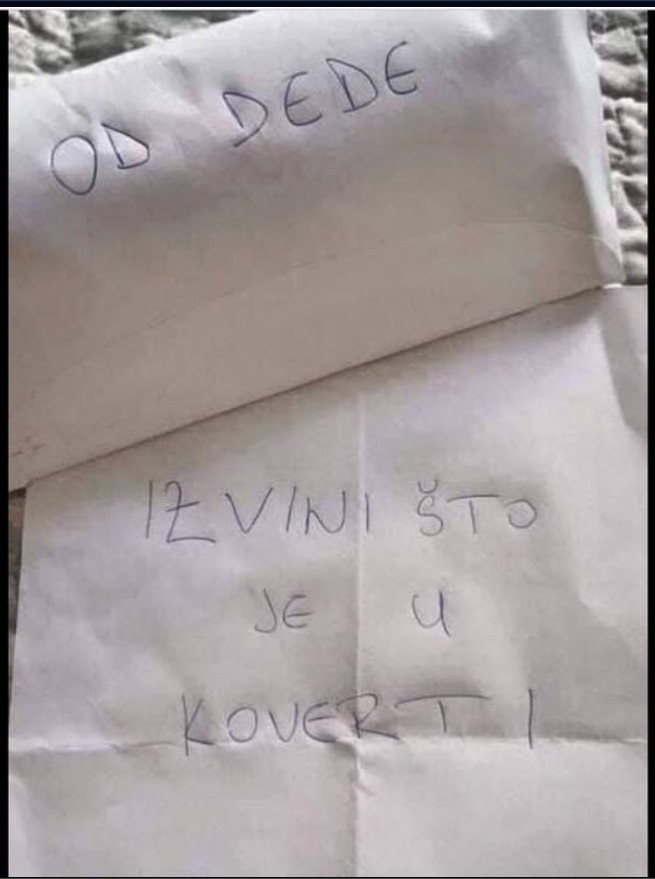 OD DEDE
IZVINI ŠTO
JE U
KOVERTI